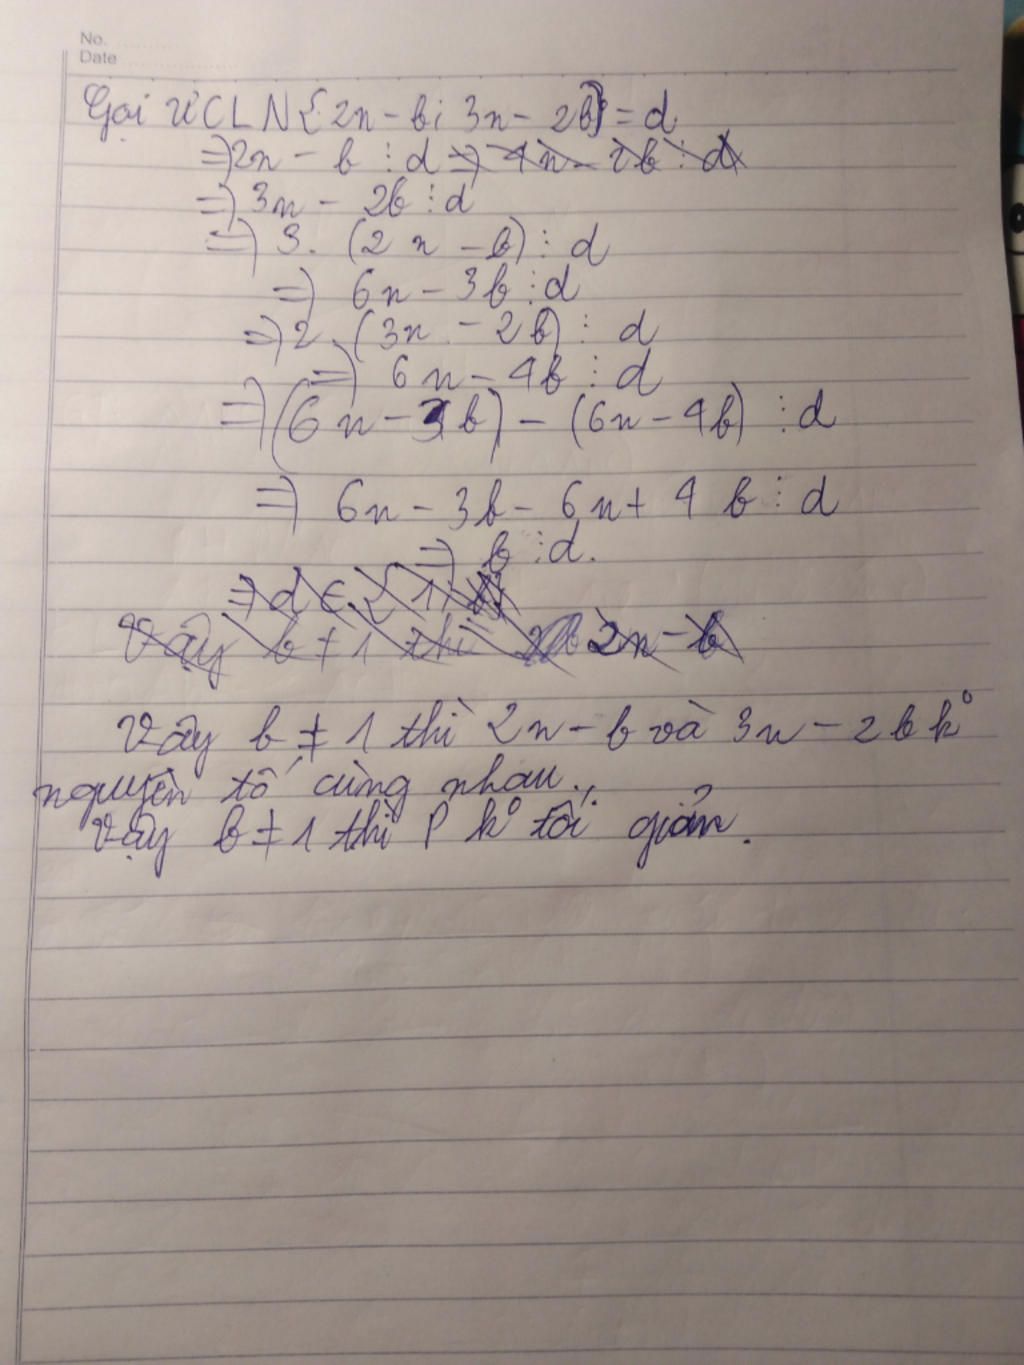 No.
Date
Gọi ƯCLN{2n - b; 3n - 2b} = d
=> 2n - b ⋮ d => 4n - 2b ⋮ d
=> 3n - 2b ⋮ d
=> 3. (2n - b) ⋮ d
=> 6n - 3b ⋮ d
=> 2. (3n - 2b) ⋮ d
=> 6n - 4b ⋮ d
=> (6n - 3b) - (6n - 4b) ⋮ d
=> 6n - 3b - 6n + 4b ⋮ d
=> b ⋮ d.
=> d ∈ {1;
Vậy b ≠ 1 thì 2n - b
Vậy b ≠ 1 thì 2n - b và 3n - 2b k°
nguyên tố cùng nhau.
Vậy b ≠ 1 thì P k° tối giản.